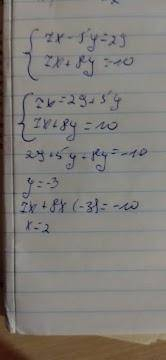 7x-5y=29
7x+8y=-10
7x=29+5y
7x+8y=10
29+5y+8y=-10
y=-3
7x+8×(-3)=-10
x=2